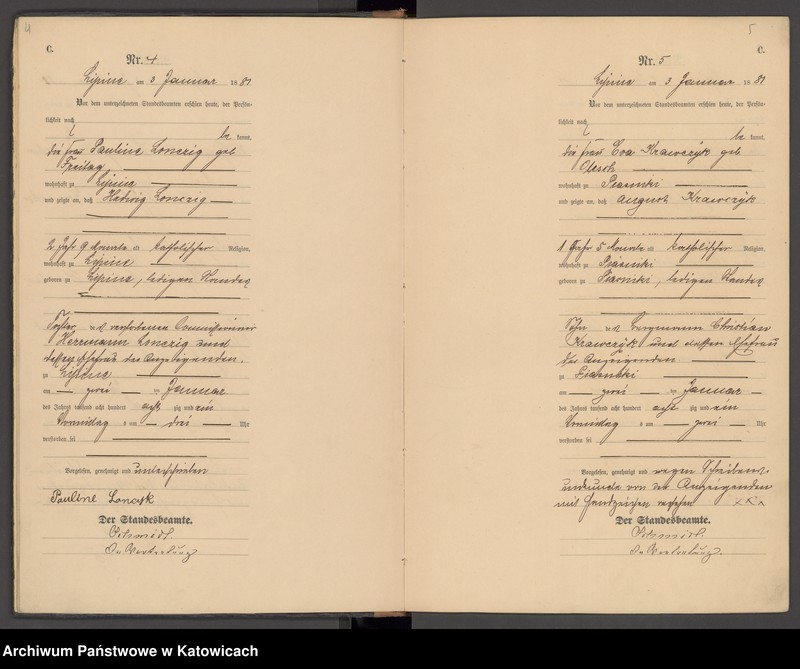 4
C.
Nr. 4
Lipine am 3 Januar 1881
Vor dem unterzeichneten Standesbeamten erschien heute, der Persön-
lichkeit nach
be kannt,
die Frau Pauline Lonczig geb
Freitag
wohnhaft zu Lipine
und zeigte an, daß Hedwig Lonczig
2 Jahr 9 Monate alt katholischer Religion,
wohnhaft zu Lipine
geboren zu Lipine, ledigen Standes
Tochter des verstorbenen
Herrmann Lonczig und
dessen Ehefrau der Anzeigenden.
zu Lipine
am zwei ten Januar
des Jahres tausend acht hundert acht zig und ein
Vormittag s um drei Uhr
verstorben sei
Vorgelesen, genehmigt und unterschrieben
Pauline Loncyk
Der Standesbeamte.
Schmidt.
In Vertretung
5
C.
Nr. 5
Lipine am 3 Januar 1881
Vor dem unterzeichneten Standesbeamten erschien heute, der Persön-
lichkeit nach
be kannt,
die Frau Eva Krawczÿk geb.
Olesch
wohnhaft zu Piasniki
und zeigte an, daß August Krawczÿk
1 Jahr 5 Monate alt katholischer Religion,
wohnhaft zu Piasniki
geboren zu Piasniki, ledigen Standes
Sohn des Bergmann Christian
Krawczÿk und dessen Ehefrau
der Anzeigenden
zu Piasniki
am zwei ten Januar
des Jahres tausend acht hundert acht zig und ein
Vormittag s um zwei Uhr
verstorben sei
Vorgelesen, genehmigt und wegen Schreibens-
unkunde von der Anzeigenden
mit Handzeichen versehen xxx
Der Standesbeamte.
Schmidt.
In Vertretung.
Archiwum Państwowe w Katowicach